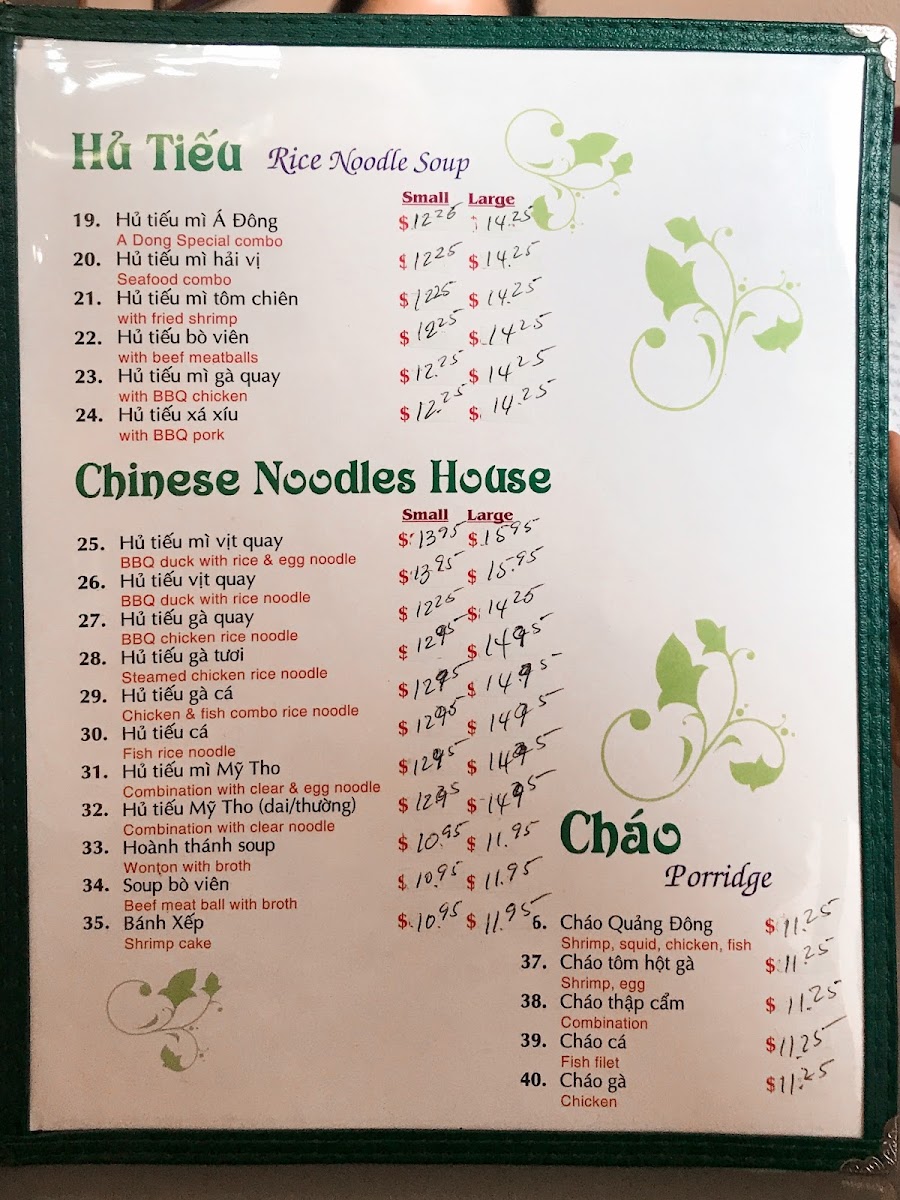 Hủ Tiếu Rice Noodle Soup
Small Large
19. Hủ tiếu mì Á Đông $12.25 $14.25
A Dong Special combo
20. Hủ tiếu mì hải vị $12.25 $14.25
Seafood combo
21. Hủ tiếu mì tôm chiên $12.25 $14.25
with fried shrimp
22. Hủ tiếu bò viên $12.25 $14.25
with beef meatballs
23. Hủ tiếu mì gà quay $12.25 $14.25
with BBQ chicken
24. Hủ tiếu xá xíu $12.25 $14.25
with BBQ pork
Chinese Noodles House
Small Large
25. Hủ tiếu mì vịt quay $13.95 $15.95
BBQ duck with rice & egg noodle
26. Hủ tiếu vịt quay $13.95 $15.95
BBQ duck with rice noodle
27. Hủ tiếu gà quay $12.25 $14.25
BBQ chicken rice noodle
28. Hủ tiếu gà tươi $12.95 $14.95
Steamed chicken rice noodle
29. Hủ tiếu gà cá $12.95 $14.95
Chicken & fish combo rice noodle
30. Hủ tiếu cá $12.95 $14.95
Fish rice noodle
31. Hủ tiếu mì Mỹ Tho $12.95 $14.95
Combination with clear & egg noodle
32. Hủ tiếu Mỹ Tho (dai/thường) $12.95 $14.95
Combination with clear noodle
33. Hoành thánh soup $10.95 $11.95
Wonton with broth
34. Soup bò viên $10.95 $11.95
Beef meat ball with broth
35. Bánh Xếp $10.95 $11.95
Shrimp cake
Cháo
Porridge
6. Cháo Quảng Đông $11.25
Shrimp, squid, chicken, fish
37. Cháo tôm hột gà $11.25
Shrimp, egg
38. Cháo thập cẩm $11.25
Combination
39. Cháo cá $11.25
Fish filet
40. Cháo gà $11.25
Chicken